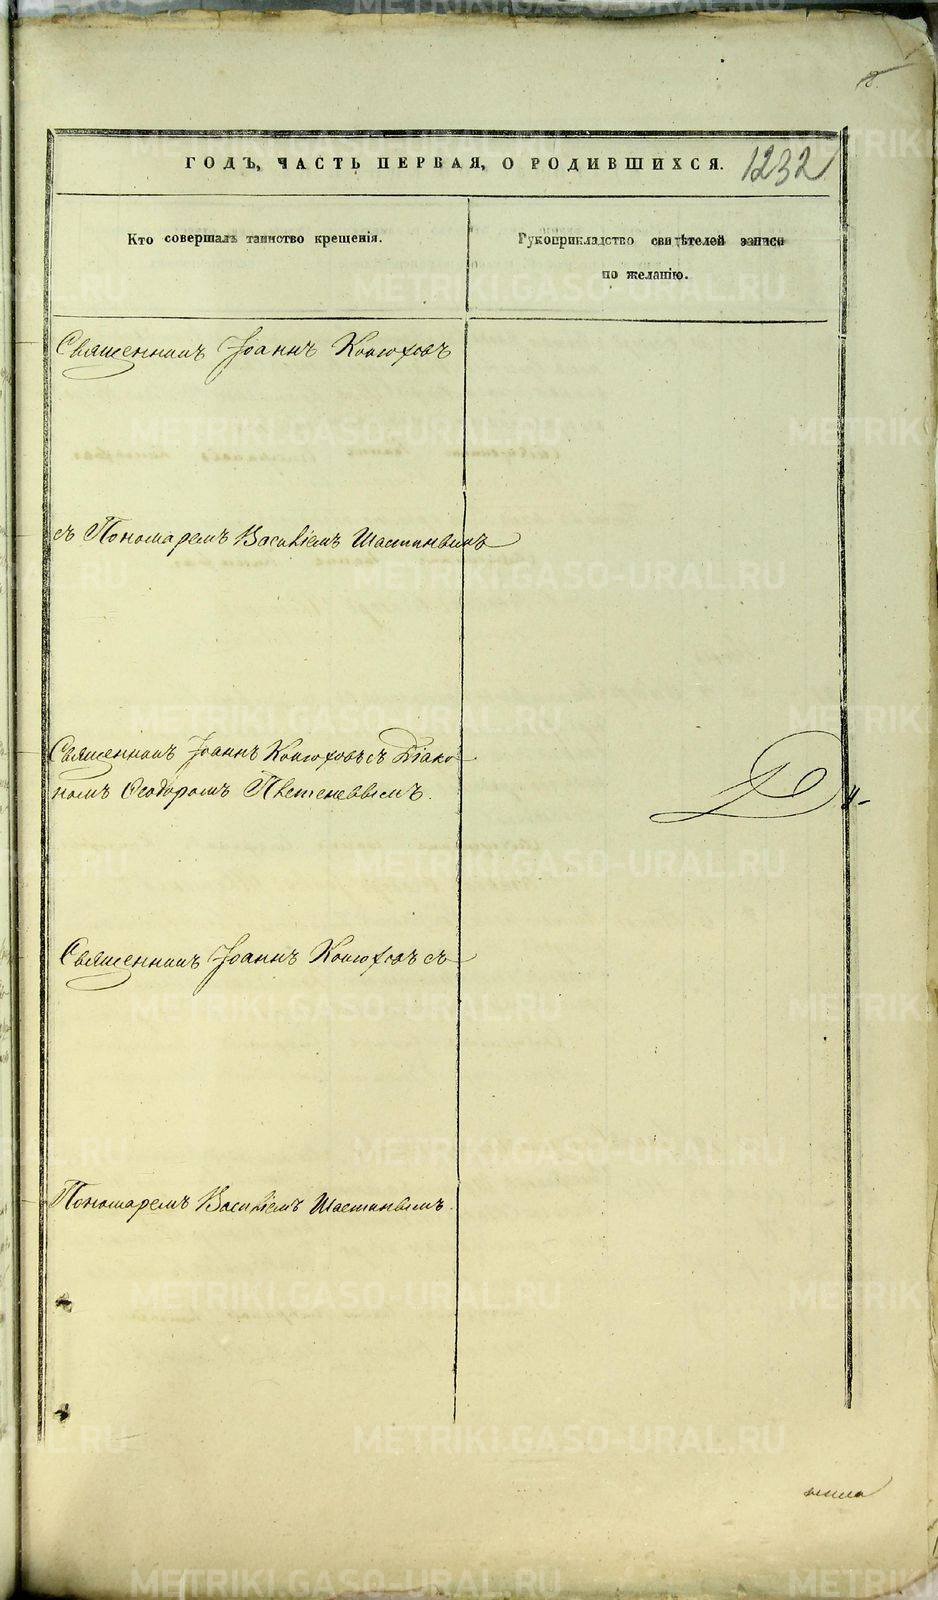 ГОДЪ, ЧАСТЬ ПЕРВАЯ, О РОДИВШИХСЯ. 1232
Кто совершалъ таинство крещенія.
Рукоприкладство свидѣтелей записи
по желанію.
Священникъ Іоаннъ Конюховъ
съ Пономаремъ Василіемъ Шастинымъ
Священникъ Іоаннъ Конюховъ съ Діако-
номъ Ѳеодоромъ
Священникъ Іоаннъ Конюховъ съ
Пономаремъ Василіемъ Шастинымъ.
METRIKI.GASO-URAL.RU